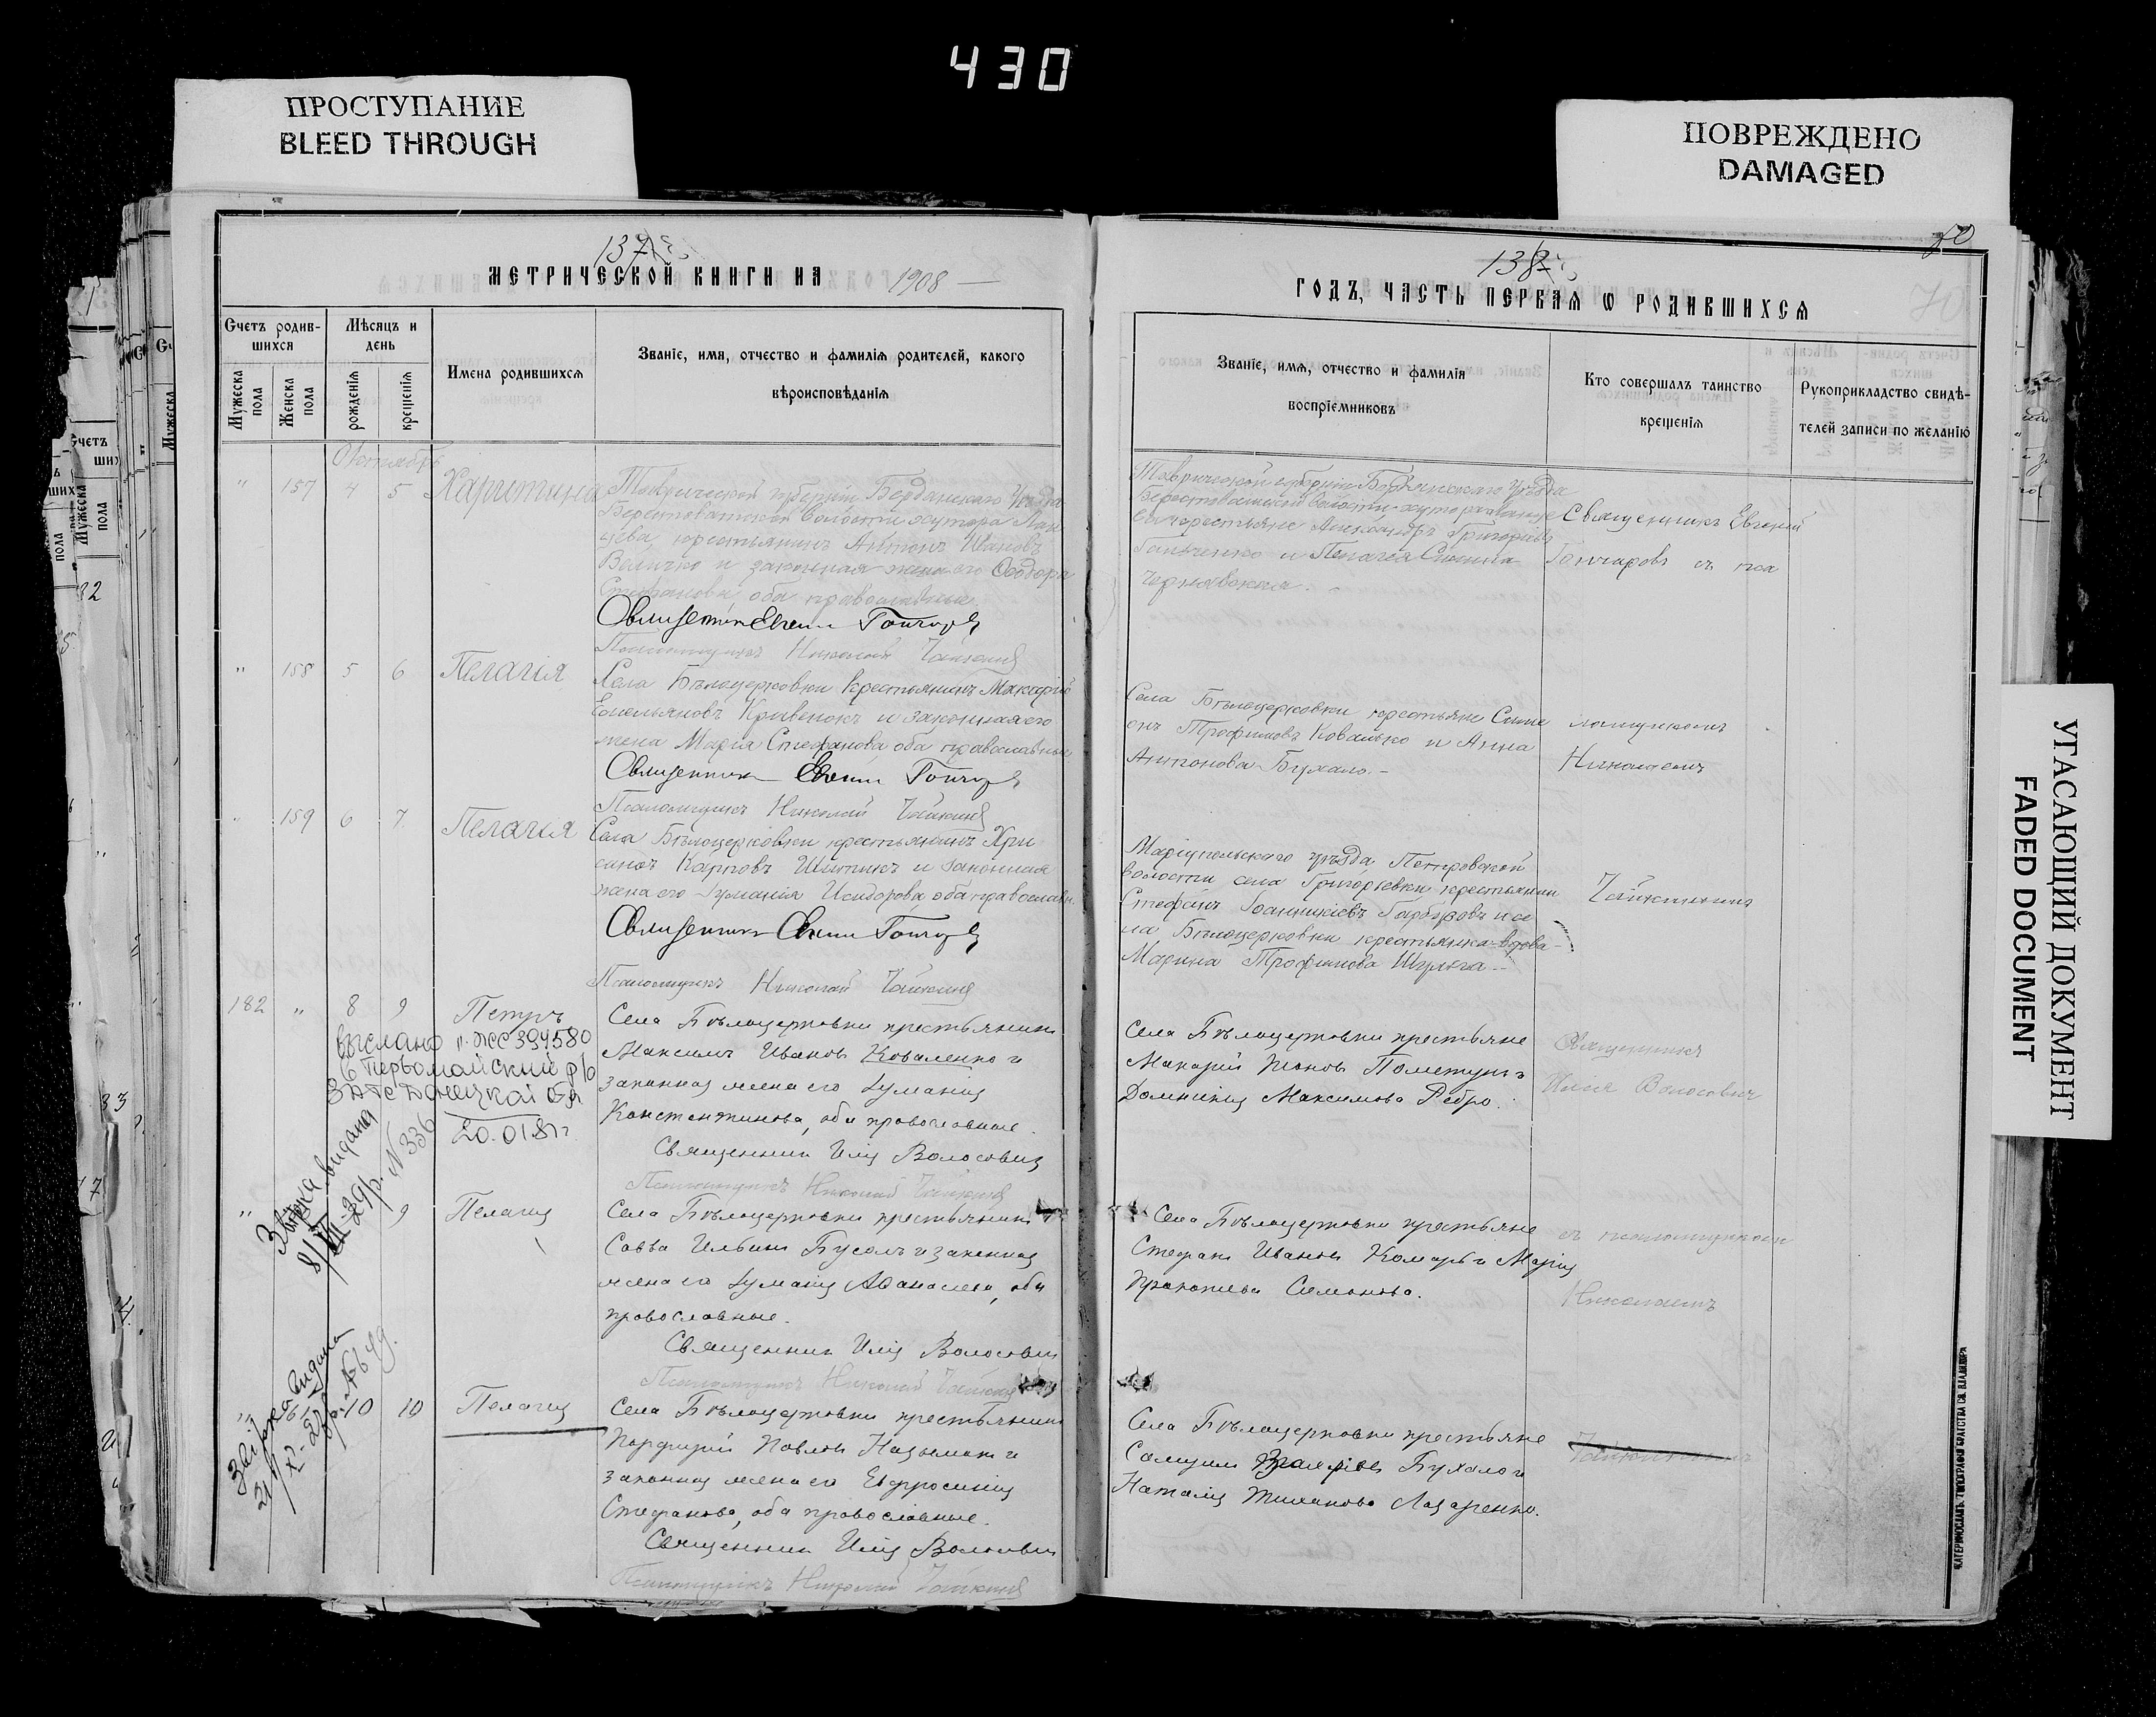 430
ПРОСТУПАНИЕ
BLEED THROUGH
ПОВРЕЖДЕНО
DAMAGED
УГАСАЮЩИЙ ДОКУМЕНТ
FADED DOCUMENT
137
МЕТРИЧЕСКОЙ КНИГИ НА 1908
Счетъ родив-
шихся
Мужеска
пола
Женска
пола
Мѣсяцъ и
день
рожденія
крещенія
Имена родившихся
Званіе, имя, отчество и фамилія родителей, какого
вѣроисповѣданія
Октябрь
" 157 4 5 Харитина
Таврической губерніи Бердянскаго уѣзда
Берестоватской волости хутора
крестьянинъ Антонъ Ивановъ
Величко и законная жена его Ѳеодора
Стефанова оба православные
Священникъ Евгеній Гончаровъ
Псаломщикъ Николай Чайкинъ
" 158 5 6 Пелагія
Села Бѣлоцерковки крестьянинъ Макарій
Емельяновъ Кривенокъ и законная его
жена Марія Стефанова оба православные
Священникъ Евгеній Гончаровъ
Псаломщикъ Николай Чайкинъ
" 159 6 7 Пелагія
Села Бѣлоцерковки крестьянинъ Хри
санѳъ Карповъ и законная
жена его Іуманія Исидорова оба православн.
Священникъ Евгеній Гончаровъ
Псаломщикъ Николай Чайкинъ
182 " 8 9 Петръ
Села Бѣлоцерковки крестьянинъ
Максимъ Ивановъ Коваленко и
законная жена его Іуманія
Константинова, оба православные.
Священникъ Илія Волосовичъ
Псаломщикъ Николай Чайкинъ
выслано п. ЖС 394580
в Первомайский р/о
ЗАГС Донецкой обл
20.01.81г.
Звірка видана
8/VII-29р. N 336
" 9 Пелагія
Села Бѣлоцерковки крестьянинъ
Савва Ильинъ Бусолъ и законная
жена его Іуманія Аѳанасіева, оба
православные.
Священникъ Илія Волосовичъ
Псаломщикъ Николай Чайкинъ
Звірка видана
" 10 10 Пелагія
Села Бѣлоцерковки крестьянинъ
Порфирій Павловъ и
законная жена его Евфросинія
Стефанова, оба православные.
Священникъ Илія Волосовичъ
Псаломщикъ Николай Чайкинъ
138
70
ГОДЪ, ЧАСТЬ ПЕРВАЯ Ѡ РОДИВШИХСЯ
Званіе, имя, отчество и фамилія
воспріемниковъ
Кто совершалъ таинство
крещенія
Рукоприкладство свидѣ-
телей записи по желанію
Таврической губерніи Бердянскаго уѣзда
Берестоватской волости хутора
крестьяне Александръ Григорьевъ
и Пелагея Симина
Чернявская.
Священникъ Евгеній
Гончаровъ съ пса
Села Бѣлоцерковки крестьяне Симе
онъ Трофимовъ Ковалько и Анна
Антонова Бухало.
ломщикомъ
Николаемъ
Маріупольскаго уѣзда Петровской
волости села Григорьевки крестьянинъ
Стефанъ Іоанникіевъ Гарбузовъ и се
ла Бѣлоцерковки крестьянка-вдова
Марина Трофимова Шульга
Чайкинымъ
Села Бѣлоцерковки крестьяне
Макарій и
Домникія Максимова Ребро.
Священникъ
Илія Волосовичъ
Села Бѣлоцерковки крестьяне
Стефанъ Ивановъ Комаръ и Марія
Прокопіева Симонова.
съ псаломщикомъ
Николаемъ
Села Бѣлоцерковки крестьяне
Самуилъ Бухало и
Наталія Лазаренко.
Чайкинымъ
ЕКАТЕРИНОСЛАВЪ. ТИПОГРАФІЯ БРАТСТВА СВ. ВЛАДИМІРА